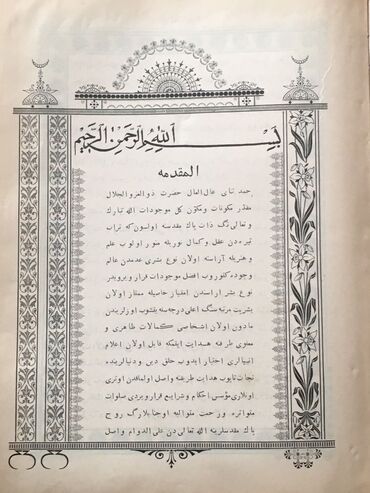 بسم الله الرحمن الرحيم
المقدمه
حمد ثنای عالی العال حضرت ذو العز و الجلال
مقدر مكونات و مكون كل موجودات الله تبارك
و تعالی نگ ذات پاك مقدسه اولسون كه تراب
تیره دن عقل و كمال نوریله منور اولوب علم
و هنریله آراسته اولان نوع بشری عدمدن عالم
وجوده كتوروب افضل موجودات قرار ویرویدر
نوع بشر اراسندن امتیاز حاصیله ممتاز اولان
بشریت مرتبه سنگ اعلی درجه سنه یتشوب اوزلریندن
مادون اولان اشخاصی كمالات ظاهری و
معنوی طرفه هدایت ایتمكه قابل اولان اعلام
انبیالری اختیار ایدوب خلق دین و دنیالرینده
نجات تاپوب هدایت طریقنه واصل اولماقدن اوتری
اونلاری مؤسس احكام و شرایع قرار ویردی صلوات
متواتره و رحمت متوالیه اوجنابلارگ روح
پاك مقدسلرینه الله تعالی دن علی الدوام واصل